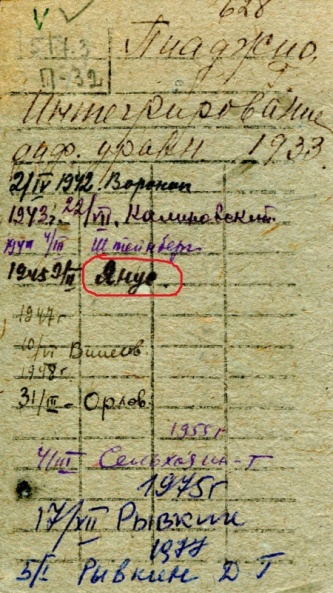 628
517.3
П-32
Пиаджио,
Г
Интегрирование
диф. уравн 1933.
2/IV 1942. Воронин
1943г. 22/VII. Калиновский
1944 4/III Штейнберг
1945 9/II Янус.
1947г
10/VI Вилесов
1948г.
31/III - Орлов
1955г
4/III Сельхозин-т
1975г
17/XII Рывкин
1977
5/I Рывкин Д Г